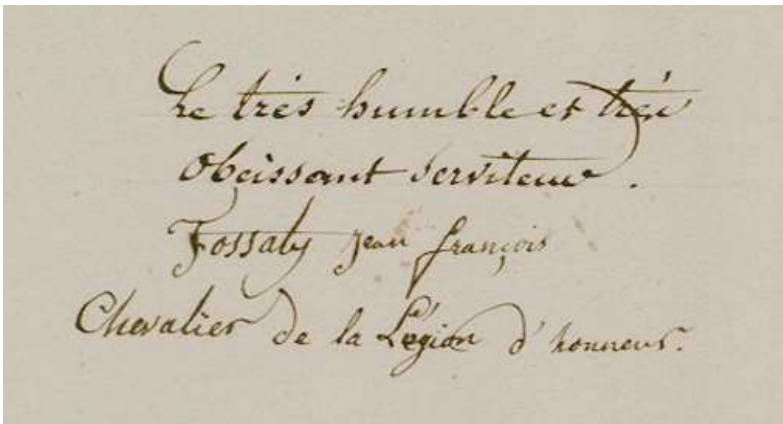 Le très humble et très
obeissant serviteur.
Fossaty jean françois
Chevalier de la Légion d'honneur.